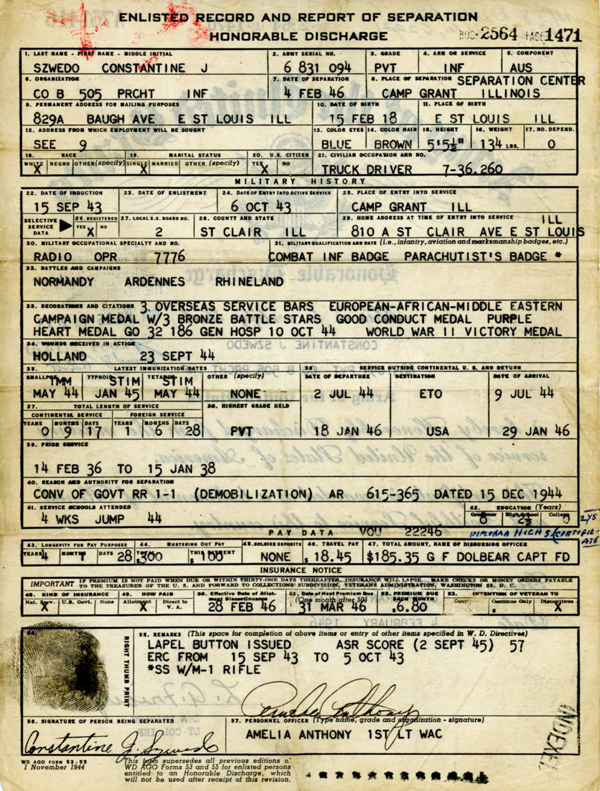 ENLISTED RECORD AND REPORT OF SEPARATION
HONORABLE DISCHARGE
2564 PAGE 1471
1. LAST NAME - FIRST NAME - MIDDLE INITIAL 2. ARMY SERIAL NO. 3. GRADE 4. ARM OR SERVICE 5. COMPONENT
SZWEDO CONSTANTINE J 6 831 094 PVT INF AUS
6. ORGANIZATION 7. DATE OF SEPARATION 8. PLACE OF SEPARATION SEPARATION CENTER
CO B 505 PRCHT INF 4 FEB 46 CAMP GRANT ILLINOIS
9. PERMANENT ADDRESS FOR MAILING PURPOSES 10. DATE OF BIRTH 11. PLACE OF BIRTH
829A BAUGH AVE E ST LOUIS ILL 15 FEB 18 E ST LOUIS ILL
12. ADDRESS FROM WHICH EMPLOYMENT WILL BE SOUGHT 13. COLOR EYES 14. COLOR HAIR 15. HEIGHT 16. WEIGHT 17. NO. DEPEND.
SEE 9 BLUE BROWN 5'5½" 134 LBS. 0
18. RACE 19. MARITAL STATUS 20. U.S. CITIZEN 21. CIVILIAN OCCUPATION AND NO.
WHITE NEGRO OTHER (specify) SINGLE MARRIED OTHER (specify) YES NO
X X X TRUCK DRIVER 7-36.260
MILITARY HISTORY
22. DATE OF INDUCTION 23. DATE OF ENLISTMENT 24. DATE OF ENTRY INTO ACTIVE SERVICE 25. PLACE OF ENTRY INTO SERVICE
15 SEP 43 6 OCT 43 CAMP GRANT ILL
SELECTIVE SERVICE DATA 26. REGISTERED YES NO 27. LOCAL S.S. BOARD NO. 28. COUNTY AND STATE 29. HOME ADDRESS AT TIME OF ENTRY INTO SERVICE ILL
X 2 ST CLAIR ILL 810 A ST CLAIR AVE E ST LOUIS
30. MILITARY OCCUPATIONAL SPECIALTY AND NO. 31. MILITARY QUALIFICATION AND DATE (i.e., infantry, aviation and marksmanship badges, etc.)
RADIO OPR 7776 COMBAT INF BADGE PARACHUTIST'S BADGE *
32. BATTLES AND CAMPAIGNS
NORMANDY ARDENNES RHINELAND
33. DECORATIONS AND CITATIONS 3 OVERSEAS SERVICE BARS EUROPEAN-AFRICAN-MIDDLE EASTERN
CAMPAIGN MEDAL W/3 BRONZE BATTLE STARS GOOD CONDUCT MEDAL PURPLE
HEART MEDAL GO 32 186 GEN HOSP 10 OCT 44 WORLD WAR II VICTORY MEDAL
34. WOUNDS RECEIVED IN ACTION
HOLLAND 23 SEPT 44
35. LATEST IMMUNIZATION DATES 36. SERVICE OUTSIDE CONTINENTAL U.S. AND RETURN
SMALLPOX IMM TYPHOID STIM TETANUS STIM OTHER (specify) DATE OF DEPARTURE DESTINATION DATE OF ARRIVAL
MAY 44 JAN 45 MAY 44 NONE 2 JUL 44 ETO 9 JUL 44
37. TOTAL LENGTH OF SERVICE 38. HIGHEST GRADE HELD
CONTINENTAL SERVICE FOREIGN SERVICE
YEARS MONTHS DAYS YEARS MONTHS DAYS
0 9 1 6 28 PVT 18 JAN 46 USA 29 JAN 46
39. PRIOR SERVICE
14 FEB 36 TO 15 JAN 38
40. REASON AND AUTHORITY FOR SEPARATION
CONV OF GOVT RR 1-1 (DEMOBILIZATION) AR 615-365 DATED 15 DEC 1944
41. SERVICE SCHOOLS ATTENDED 42. EDUCATION (Years)
Grammar High School College
4 WKS JUMP 44 8 2½ 0 2YS
PAY DATA VOU 22246 DIPLOMA HIGH S. CERTIFICATE
43. LONGEVITY FOR PAY PURPOSES 44. MUSTERING OUT PAY 45. SOLDIER DEPOSITS 46. TRAVEL PAY 47. TOTAL AMOUNT, NAME OF DISBURSING OFFICER
YEARS MONTHS DAYS TOTAL THIS PAYMENT
4 1 28 $300 $100 NONE $18.45 $185.35 G F DOLBEAR CAPT FD
INSURANCE NOTICE
IMPORTANT IF PREMIUM IS NOT PAID WHEN DUE OR WITHIN THIRTY-ONE DAYS THEREAFTER, INSURANCE WILL LAPSE. MAKE CHECKS OR MONEY ORDERS PAYABLE
TO THE TREASURER OF THE U. S. AND FORWARD TO COLLECTIONS SUBDIVISION, VETERANS ADMINISTRATION, WASHINGTON 25, D. C.
48. KIND OF INSURANCE 49. HOW PAID 50. Effective Date of Allotment Discontinuance 51. Date of Next Premium Due (One month after 50) 52. PREMIUM DUE EACH MONTH 53. INTENTION OF VETERAN TO
Nat. Serv. U.S. Govt. None Allotment Direct to V. A. Continue Continue Only Discontinue
X X 28 FEB 46 31 MAR 46 6.80 X
54. RIGHT THUMB PRINT
55. REMARKS (This space for completion of above items or entry of other items specified in W. D. Directives)
LAPEL BUTTON ISSUED ASR SCORE (2 SEPT 45) 57
ERC FROM 15 SEP 43 TO 5 OCT 43
*SS W/M-1 RIFLE
Amelia Anthony
56. SIGNATURE OF PERSON BEING SEPARATED 57. PERSONNEL OFFICER (Type name, grade and organization - signature)
Constantine J. Szwedo AMELIA ANTHONY 1ST LT WAC
INDEXED
WD AGO FORM 53-55
1 November 1944
This form supersedes all previous editions of
WD AGO Forms 53 and 55 for enlisted persons
entitled to an Honorable Discharge, which
will not be used after receipt of this revision.